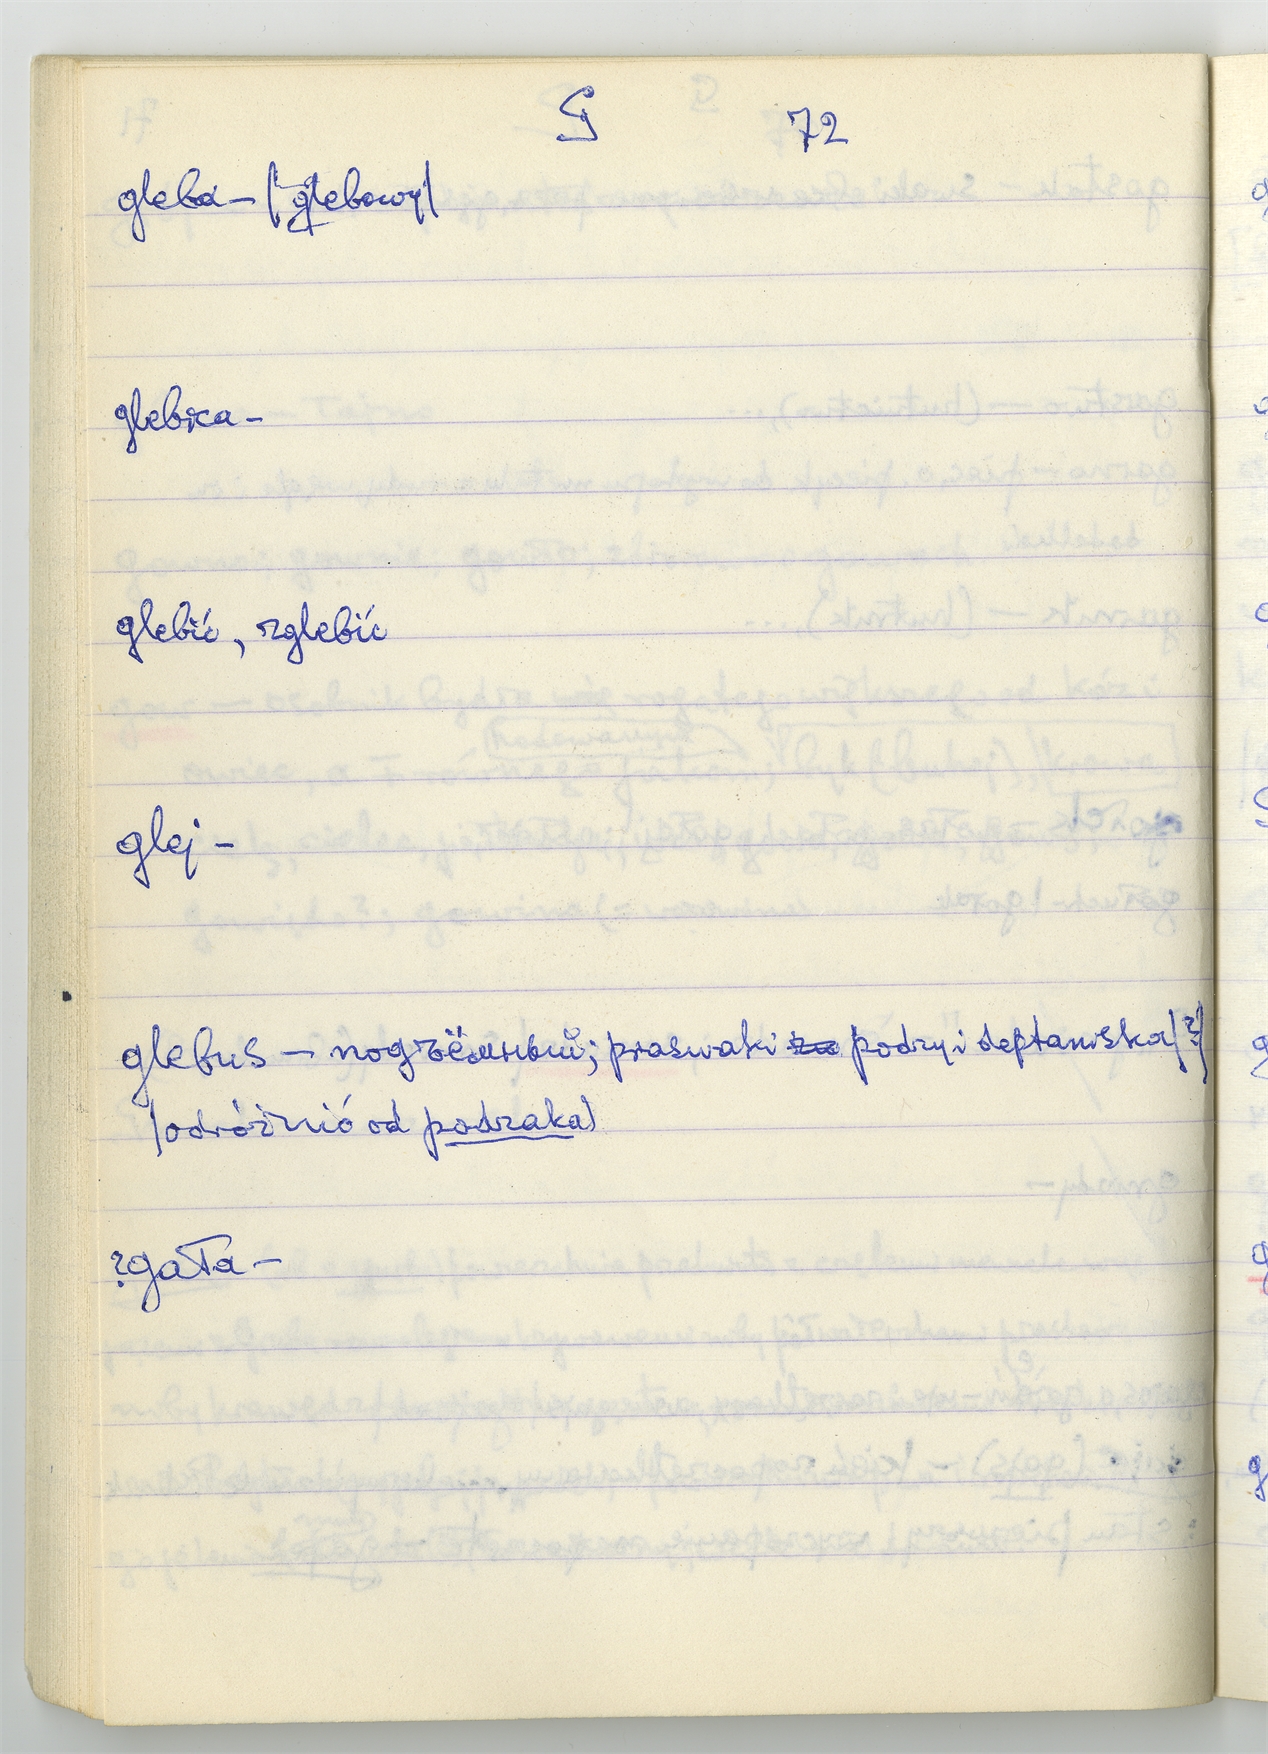 G 72
gleba – (głebowy)
glebka –
glebić, zglebić
glej –
glebus – подъёмный; prasłwaki podzy i deptaniska (?)
(odróżnić od podzaka)
?gała –